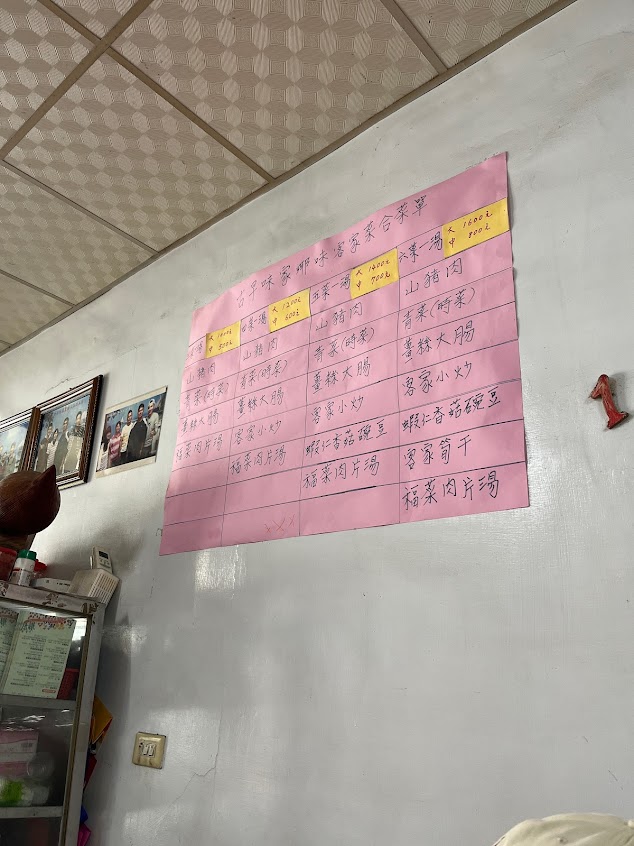 家鄉味客家菜合菜單
大 1000元 四菜一湯 大 1200元 五菜一湯 大 1400元 六菜一湯 大 1600元
中 500元 中 600元 中 700元 中 800元
山豬肉 山豬肉 山豬肉 山豬肉
青菜(時菜) 青菜(時菜) 青菜(時菜) 青菜(時菜)
薑絲大腸 薑絲大腸 薑絲大腸 薑絲大腸
福菜肉片湯 客家小炒 客家小炒 客家小炒
福菜肉片湯 蝦仁香菇碗豆 蝦仁香菇碗豆
福菜肉片湯 客家筍干
福菜肉片湯
1